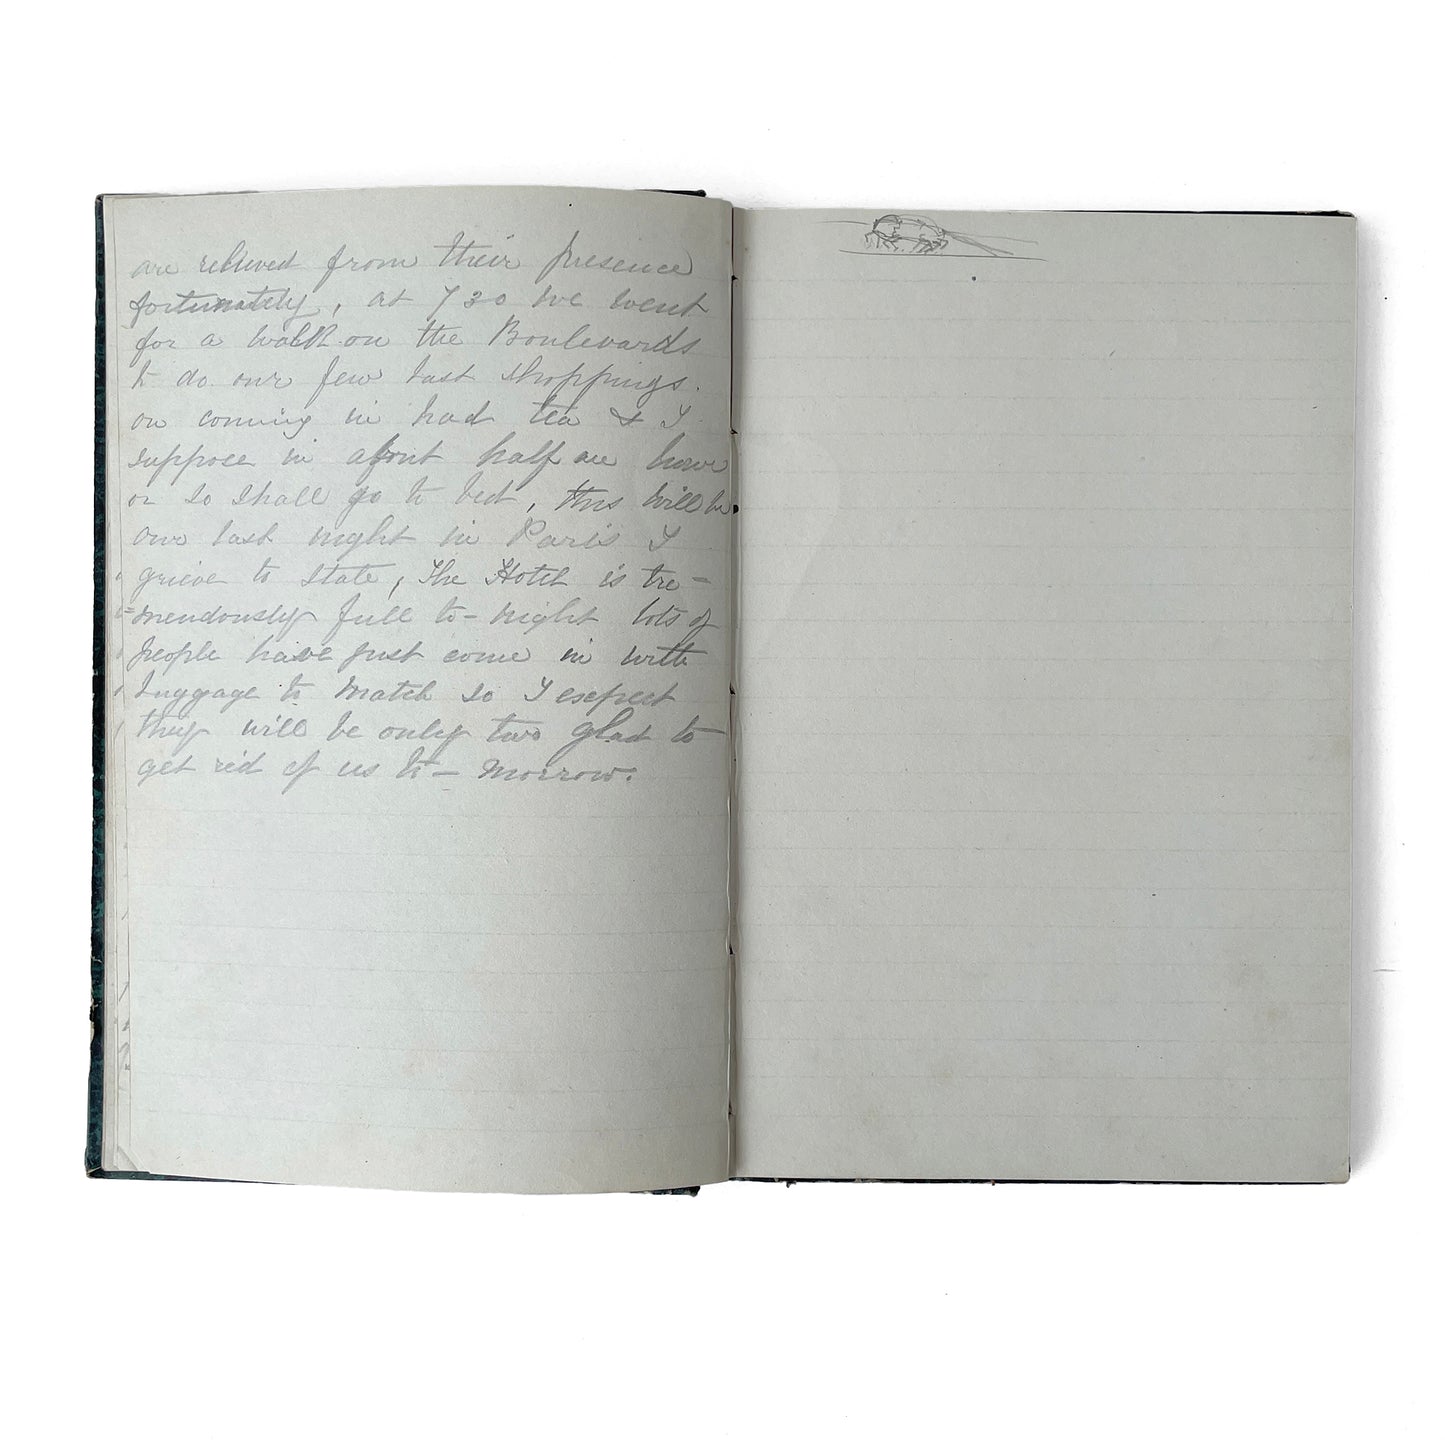 are relieved from their presence
fortunately, at 7 30 we went
for a walk on the Boulevards
to do our few last shoppings.
on coming in had tea & I
suppose in about half an hour
or so shall go to bed, this will be
our last night in Paris I
grieve to state, The Hotel is tre-
mendously full to-night lots of
people have just come in with
luggage to match so I expect
they will be only two glad to
get rid of us to-morrow.